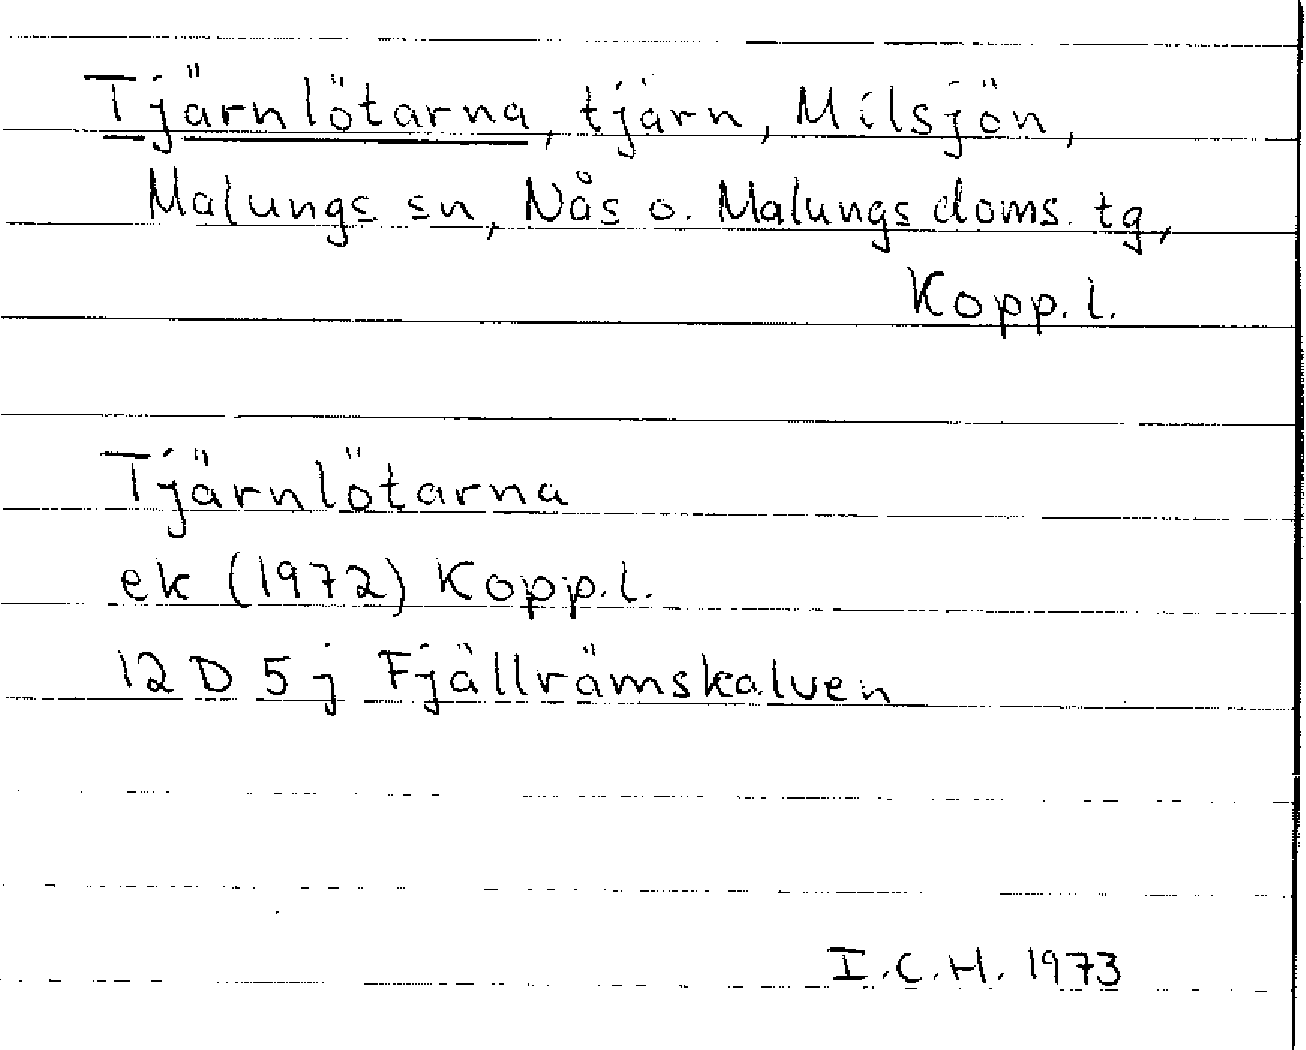 Tjärnlötarna, tjärn, Milsjön,
Malungs sn, Nås o. Malungs doms. tg,
Kopp. l.
Tjärnlötarna
ek (1972) Kopp. l.
12 D 5 j Fjällrämskalven
I.C.H. 1973